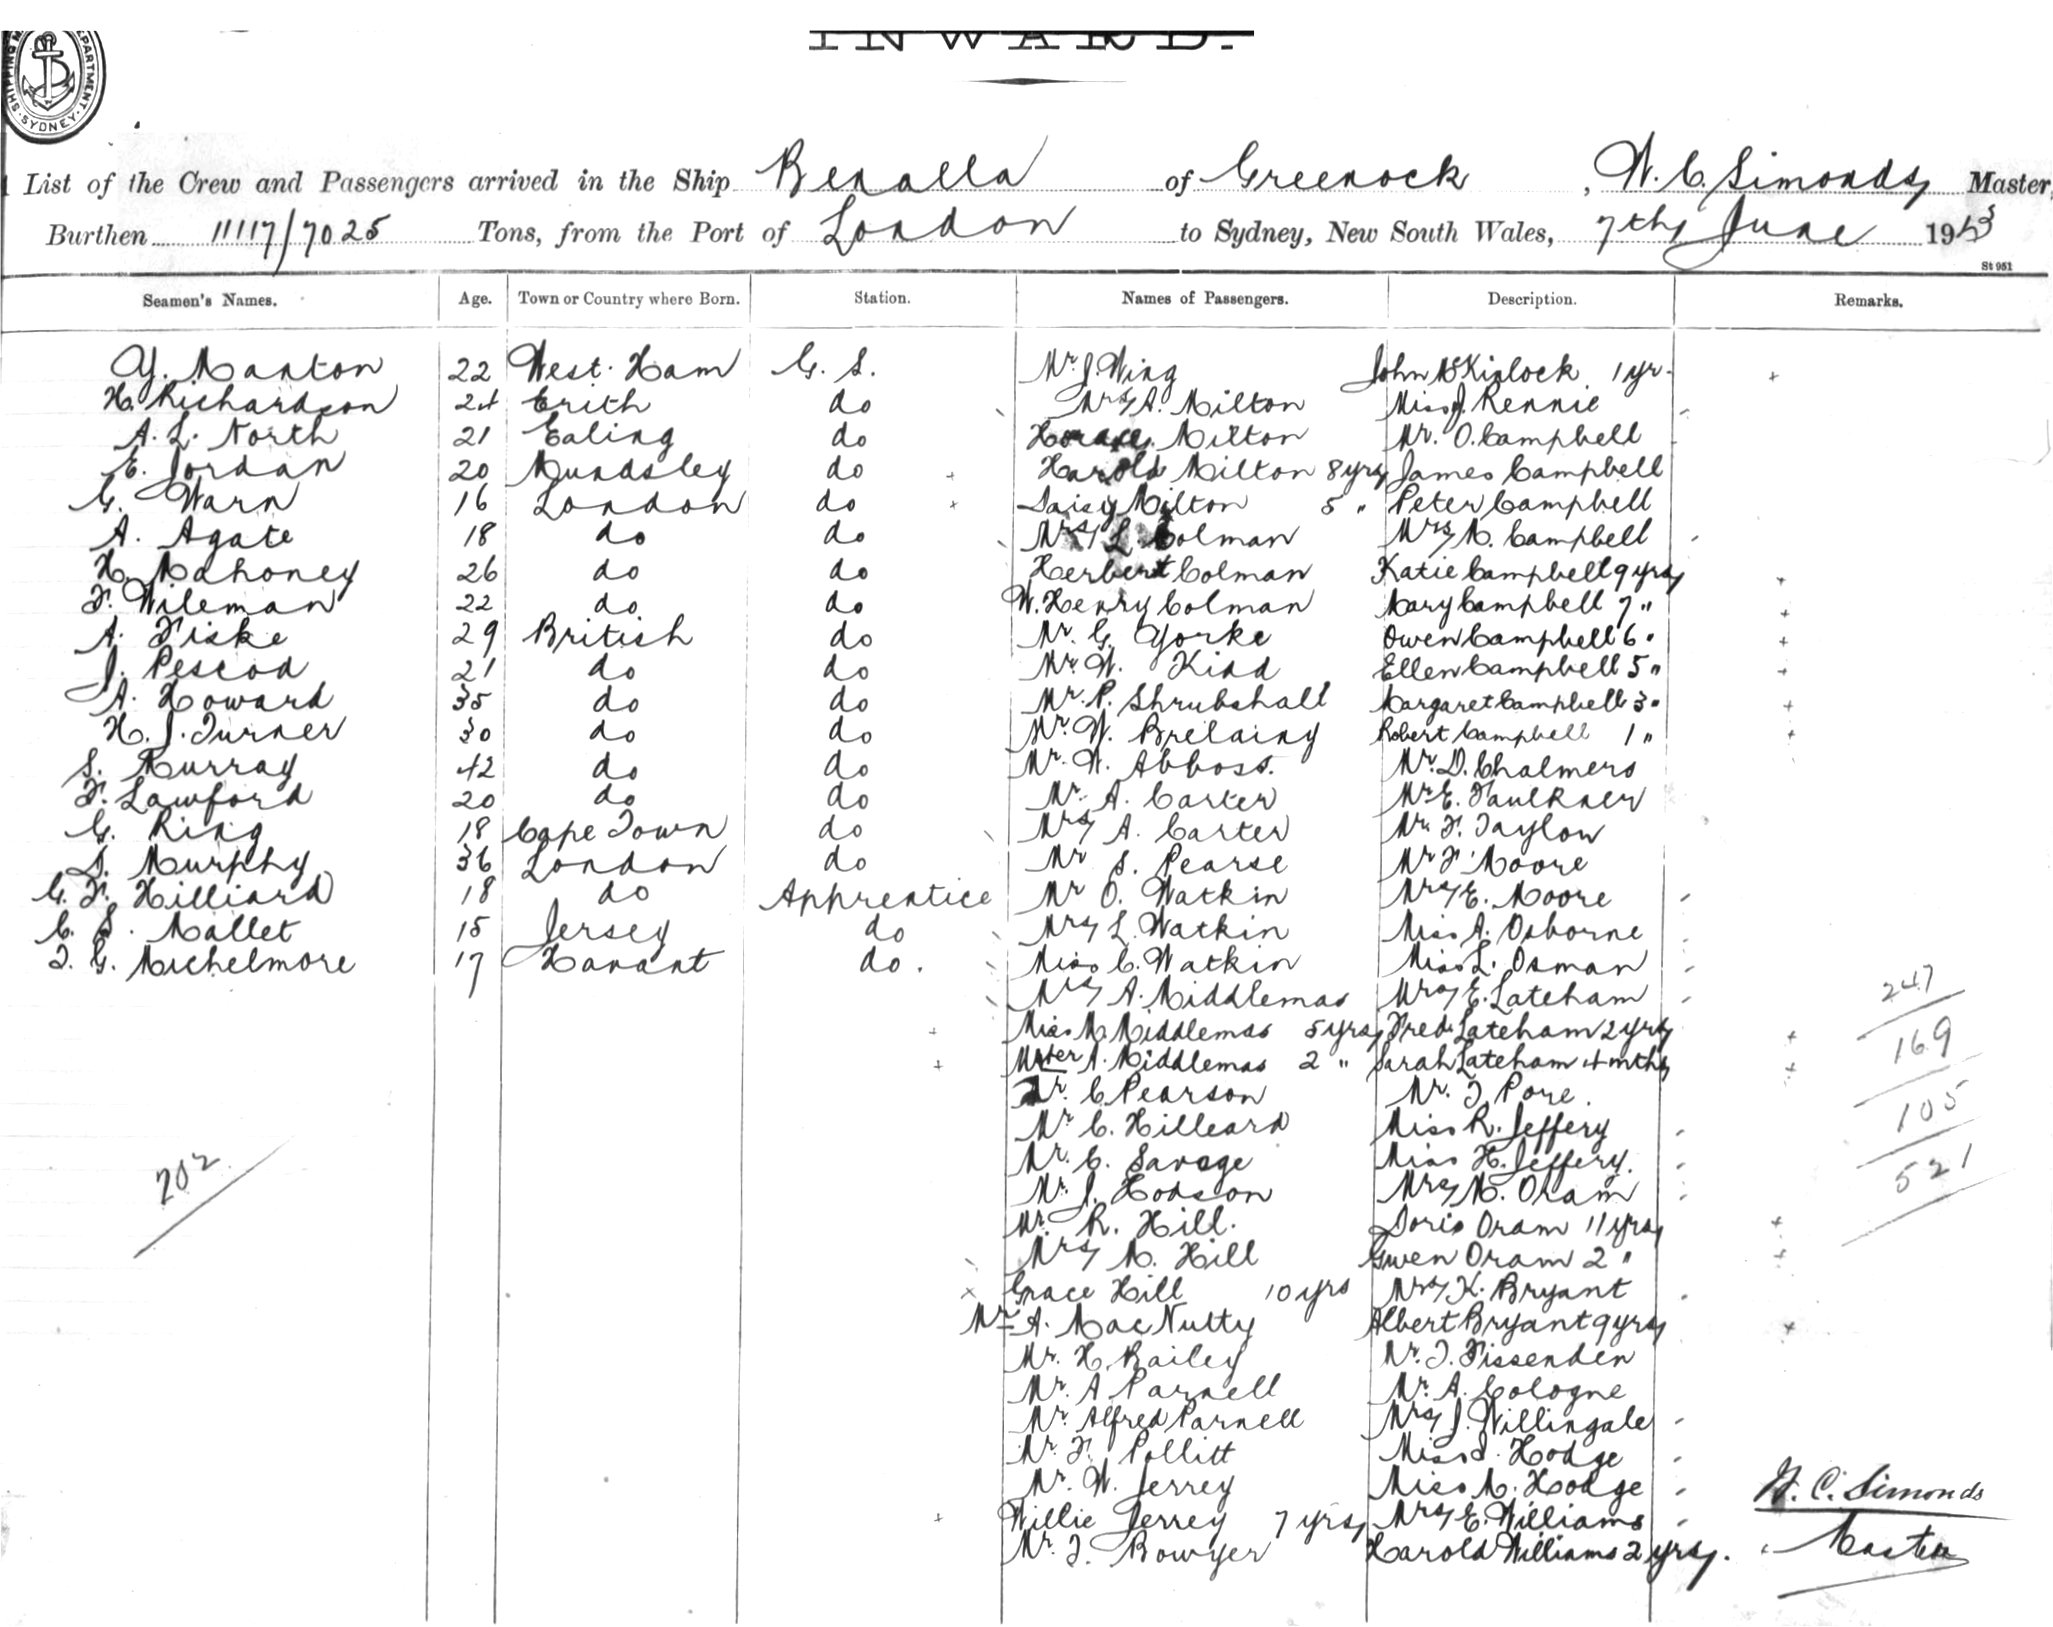 SHIPPING DEPARTMENT SYDNEY
INWARD.
List of the Crew and Passengers arrived in the Ship Benalla of Greenock, W. C. Simonds Master,
Burthen 11117/7025 Tons, from the Port of London to Sydney, New South Wales, 7th June 1913
St 951
Seamen's Names. Age. Town or Country where Born. Station. Names of Passengers. Description. Remarks.
Y. Manton 22 West Ham G. S. Mr J. Wing John McKinlock 1 yr.
H. Richardson 24 Erith do Mrs A. Milton Miss J. Rennie
A. L. North 21 Ealing do Horace Milton Mr. O. Campbell
E. Jordan 20 Mundsley do Harold Milton 8 yrs James Campbell
G. Warn 16 London do Daisy Milton 5 " Peter Campbell
A. Agate 18 do do Mrs L. Colman Mrs M. Campbell
H. Mahoney 26 do do Herbert Colman Katie Campbell 9 yrs
F. Wileman 22 do do W. Henry Colman Mary Campbell 7 "
A. Fiske 29 British do Mr. G. Yorke Owen Campbell 6 "
J. Pescod 21 do do Mr. W. Kidd Ellen Campbell 5 "
A. Howard 35 do do Mr. P. Shrubshall Margaret Campbell 3 "
H. J. Turner 30 do do Mr. W. Brelainy Robert Campbell 1 "
S. Murray 42 do do Mr. W. Abboss. Mr. D. Chalmers
F. Lawford 20 do do Mr. A. Carter Mr E. Faulkner
G. Ring 18 Cape Town do Mrs A. Carter Mr. F. Taylow
D. Murphy 36 London do Mr S. Pearse Mr F. Moore
G. F. Hilliard 18 do Apprentice Mr O. Watkin Mrs E. Moore
C. S. Mallet 15 Jersey do Mrs L. Watkin Miss A. Osborne
T. G. Michelmore 17 Havant do. Miss C. Watkin Miss L. Osman
Mrs A. Middlemas Mrs E. Lateham
Miss M. Middlemas 5 yrs Fred. Lateham 2 yrs
Mster A. Middlemas 2 " Sarah Lateham 4 mths
Mr. C. Pearson Mr. T. Pore.
Mr C. Hilleard Miss R. Jeffery
Mr. C. Savage Miss H. Jeffery.
Mr. J. Hodson Mrs M. Oram
Mr. R. Hill. Doris Oram 11 yrs
Mrs M. Hill Gwen Oram 2 "
Grace Hill 10 yrs Mrs K. Bryant
Mr A. MacNulty Albert Bryant 9 yrs
Mr. H. Bailey Mr. T. Fissenden
Mr. A Parnell Mr. A. Cologne
Mr. Alfred Parnell Mrs J. Willingale
Mr. F. Pollitt Miss I. Hodge
Mr. W. Jerrey Miss M. Hodge
Willie Jerrey 7 yrs Mrs E. Williams
Mr. T. Bowyer Harold Williams 2 yrs.
202
247
169
105
521
W. C. Simonds
Master